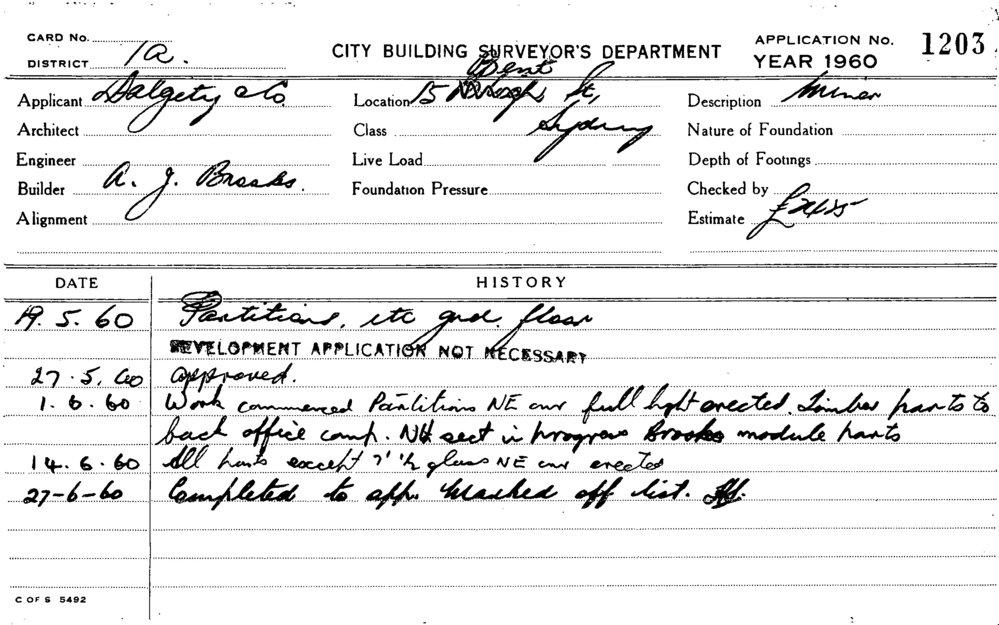 CARD No.
DISTRICT 1a.
CITY BUILDING SURVEYOR'S DEPARTMENT
APPLICATION No. 1203
YEAR 1960
Applicant Dalgety & Co.
Location 15 Bent St,
Sydney
Description Minor
Architect
Class
Nature of Foundation
Engineer
Live Load
Depth of Footings
Builder A. J. Brooks.
Foundation Pressure
Checked by
Alignment
Estimate
DATE
HISTORY
19. 5. 60 Partitions, etc grd. floor
DEVELOPMENT APPLICATION NOT NECESSARY
27. 5. 60 approved.
1. 6. 60 Work commenced Partitions NE cnr full hght erected. Timber parts to
back office comp. NW sect in progress Brooks module parts
14. 6. 60 All parts except 7' h glass NE cnr erected
27-6-60 Completed to app. Marked off list.
C OF S 5492